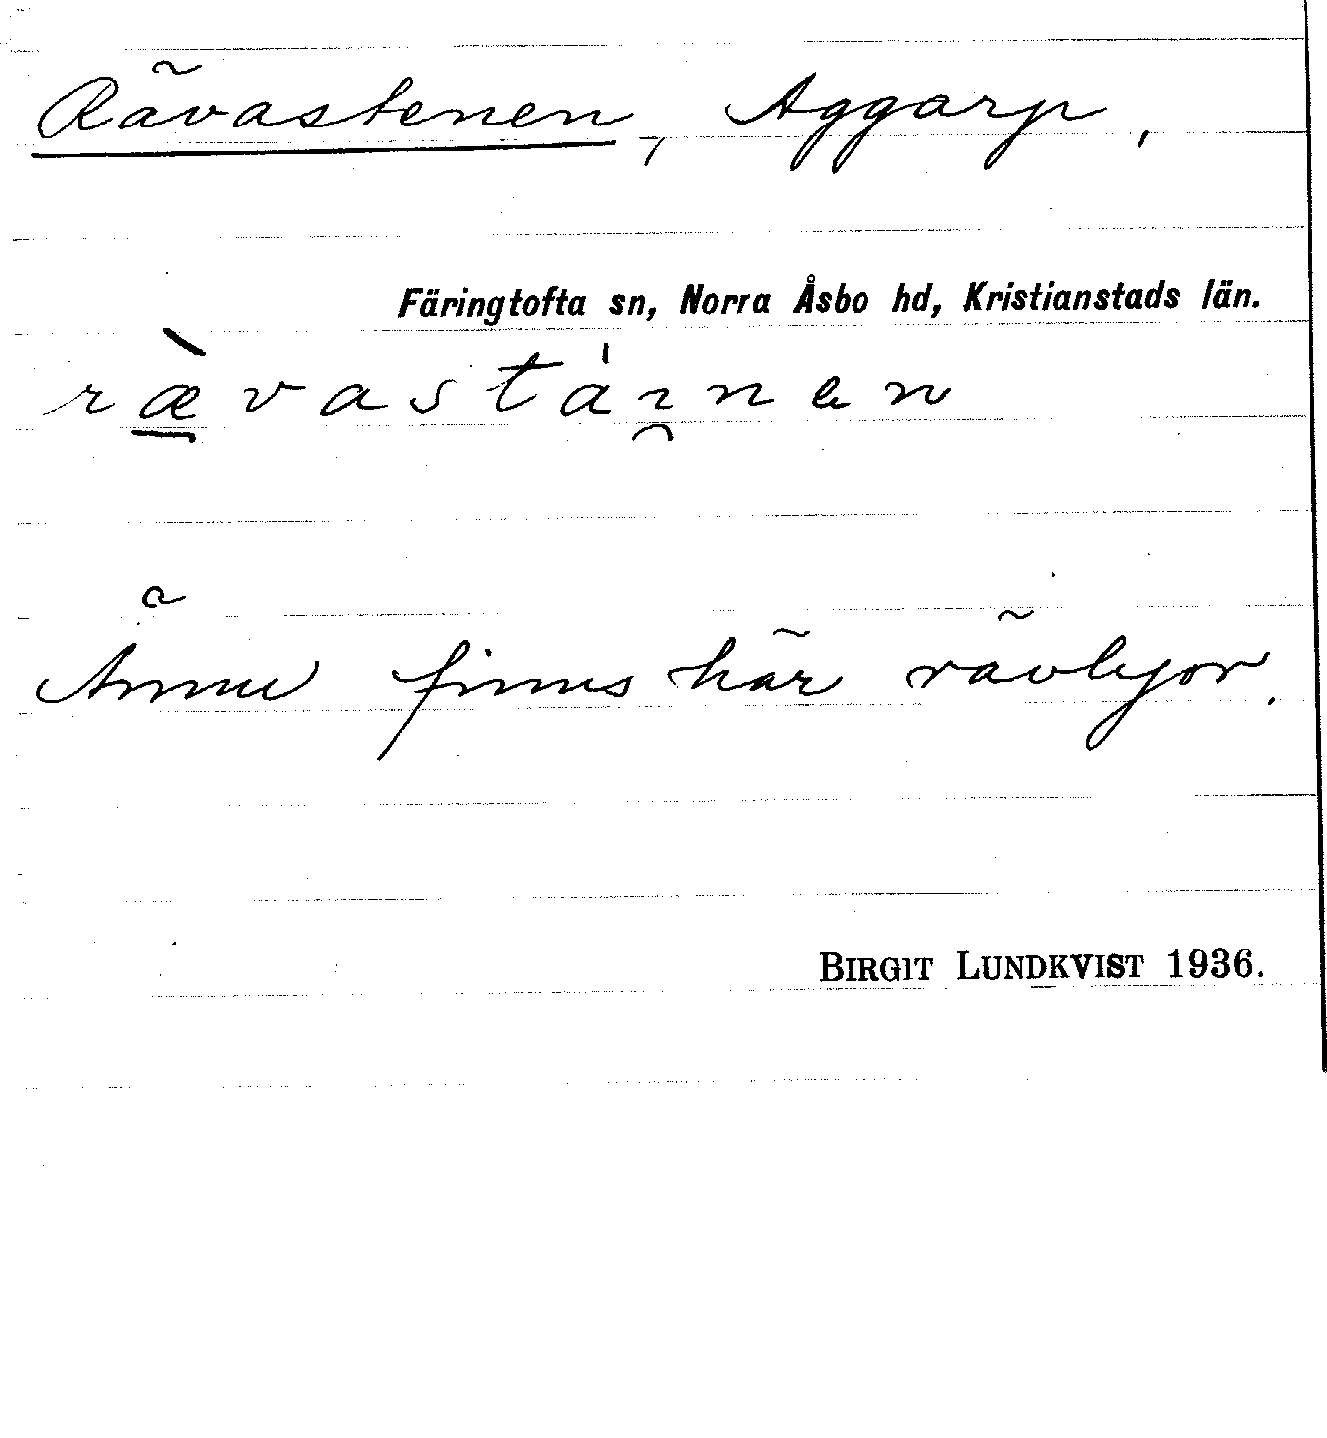 Rävastenen, Aggarp,
Färingtofta sn, Norra Åsbo hd, Kristianstads län.
ræ̀vastáı̯nen
Ännu finns här rävlyor.
BIRGIT LUNDKVIST 1936.